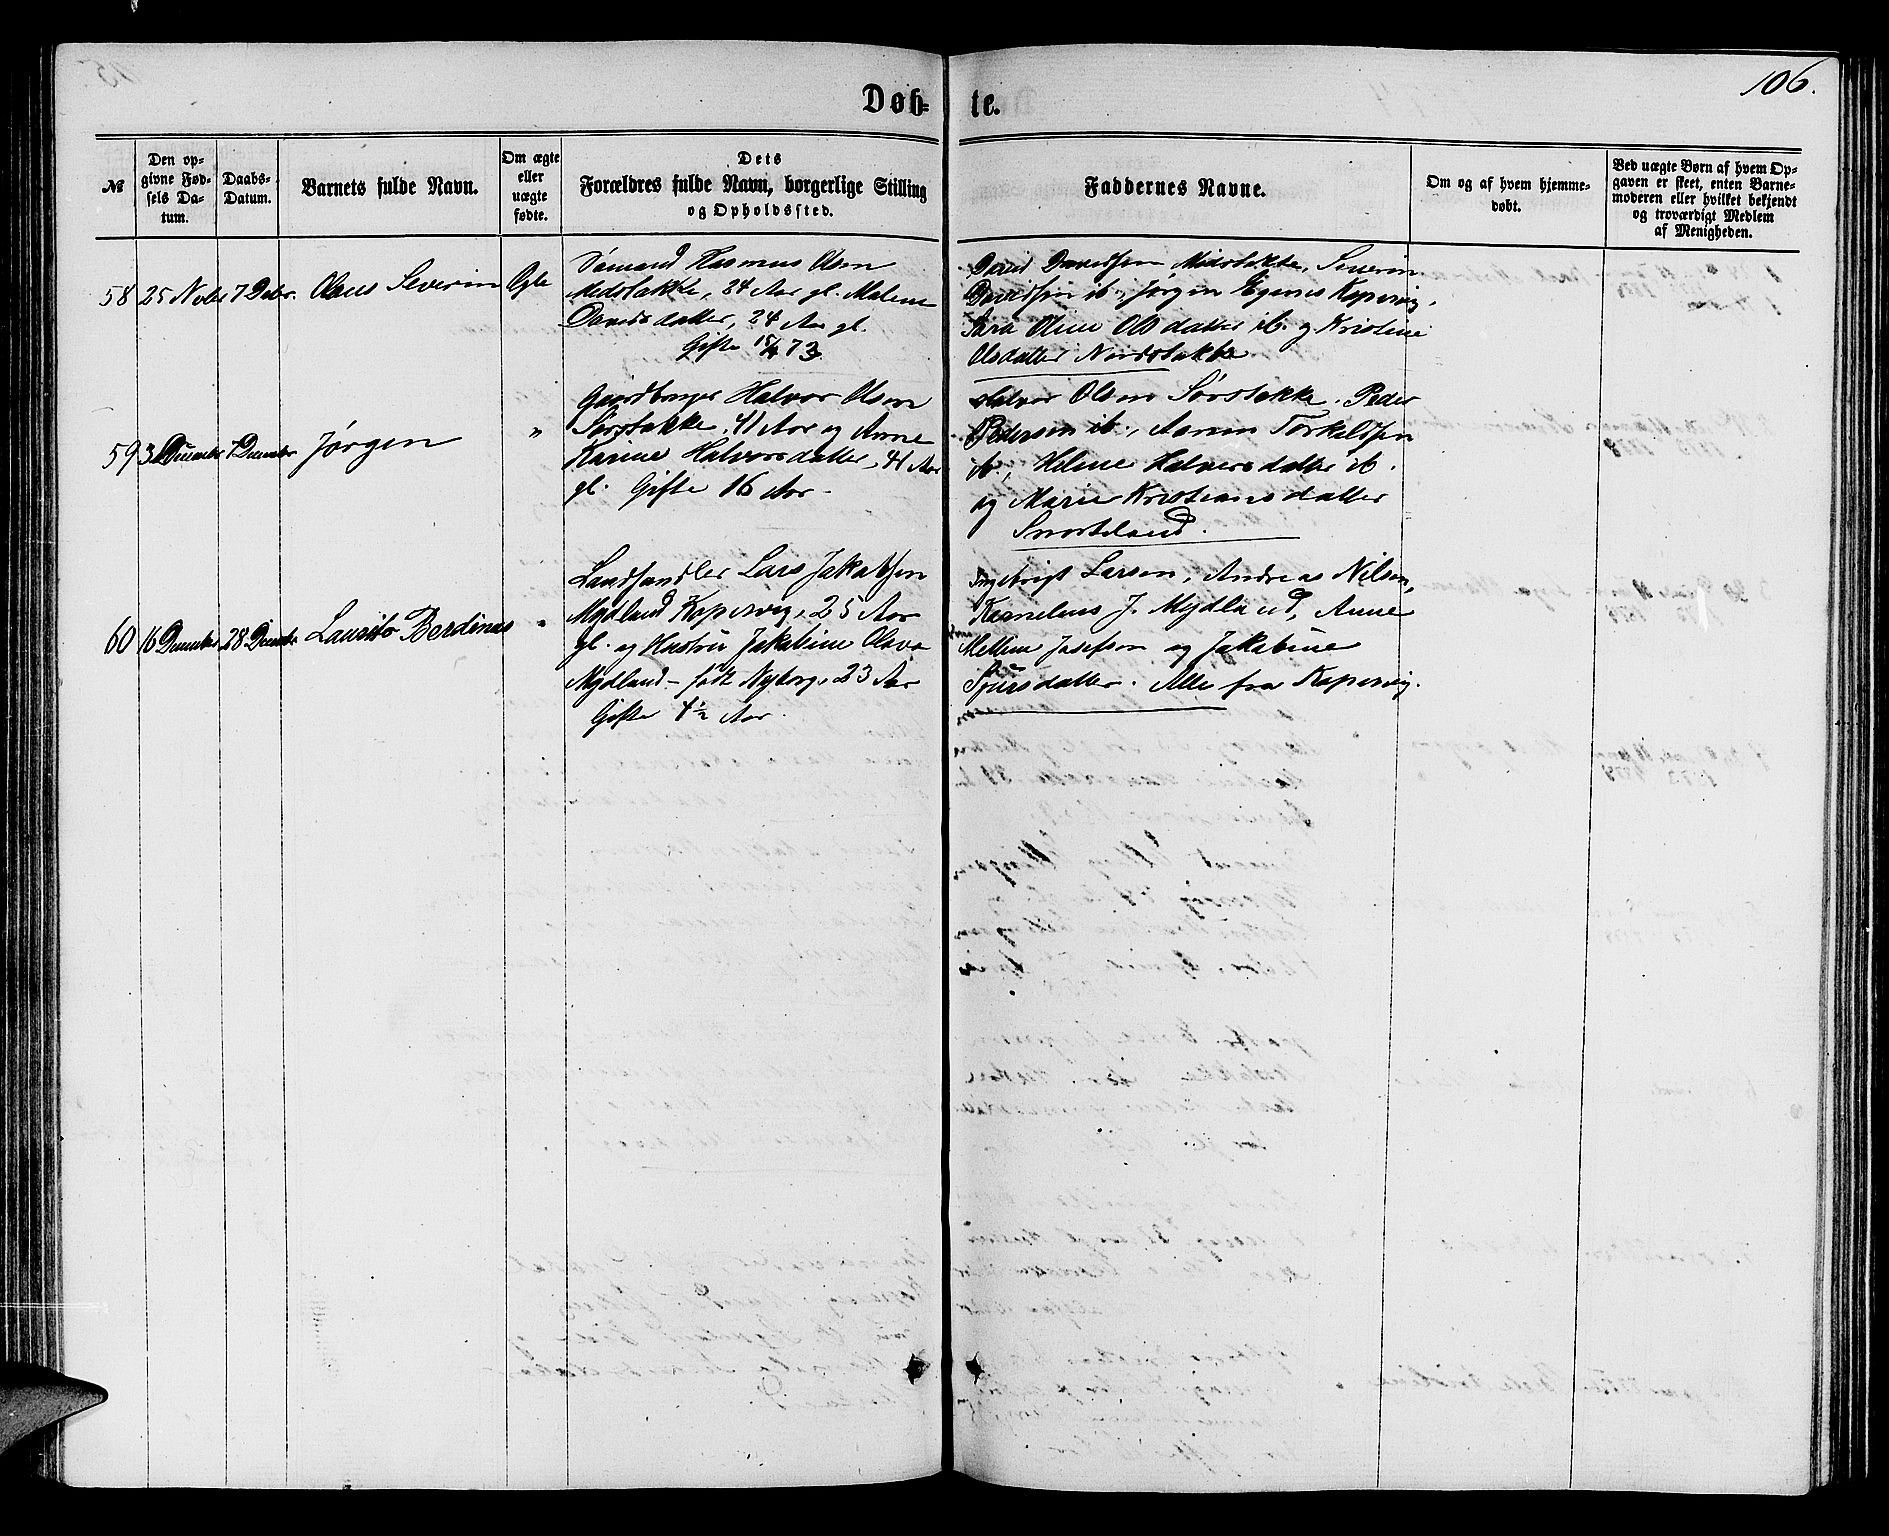 106.
Døb-te.
№
Den opgivne Fødsels Datum.
Daabs-Datum.
Barnets fulde Navn.
Om ægte eller uægte fødte.
Dets Forældres fulde Navn, borgerlige Stilling og Opholdssted.
Faddernes Navne.
Om og af hvem hjemmedøbt.
Ved uægte Børn af hvem Opgaven er skeet, enten Barnemoderen eller hvilket bekjendt og troværdigt Medlem af Menigheden.
58 25 Nvbr 7 Debr. Olaus Severin Egte
Sømand Rasmus Olsen
Medstakke, 24 Aar gl. Malene
Davidsdatter, 24 Aar gl.
Gifte 15/4 73.
David Davidsen Midstakke, Severin
Davidsen ib., Jørgen Egenes Kopervig,
Sara Oline Olsdatter ib. og Kristine
Olsdatter Nordstakke
59 3 Decembr 7 Decembr Jørgen "
Gaardbruger Halvor Olsen
Sørstakke, 41 Aar og Anne
Karine Halvorsdatter, 41 Aar
gl. Gifte 16 Aar.
Halvor Olsen Sørstakke. Peder
Pedersen ib., Aamun Torkeldsen
ib., Helene Halvorsdatter ib.
og Marie Kristiansdatter
Snorteland.
60 16 Decembr 28 Decembr Laurits Berdinus "
Landhandler Lars Jakobsen
Mydland Kopervig, 25 Aar
gl. og Hustru Jakobine Olava
Mydland – født Nyborg, 23 Aar
Gifte 4½ Aar.
Ingebrigt Larsen, Andreas Nilsen,
Kornelius J. Mydland, Anne
Mallene Josefsen og Jakobine
Sjursdatter. Alle fra Kopervig.